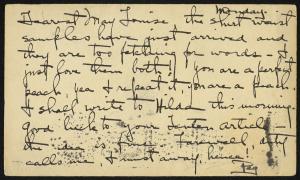 Monday.
Dearest May Louise - the shirt waist
samples have just arrived and
they are too fetching for words - I
just love them both! you are a perfect
peach, yea I repeat it, you are a peach.
I shall write to Hilda this morning.
Good luck to your article -
the idea is fine. Farewell, duty
calls me & I must away, hence
Peg